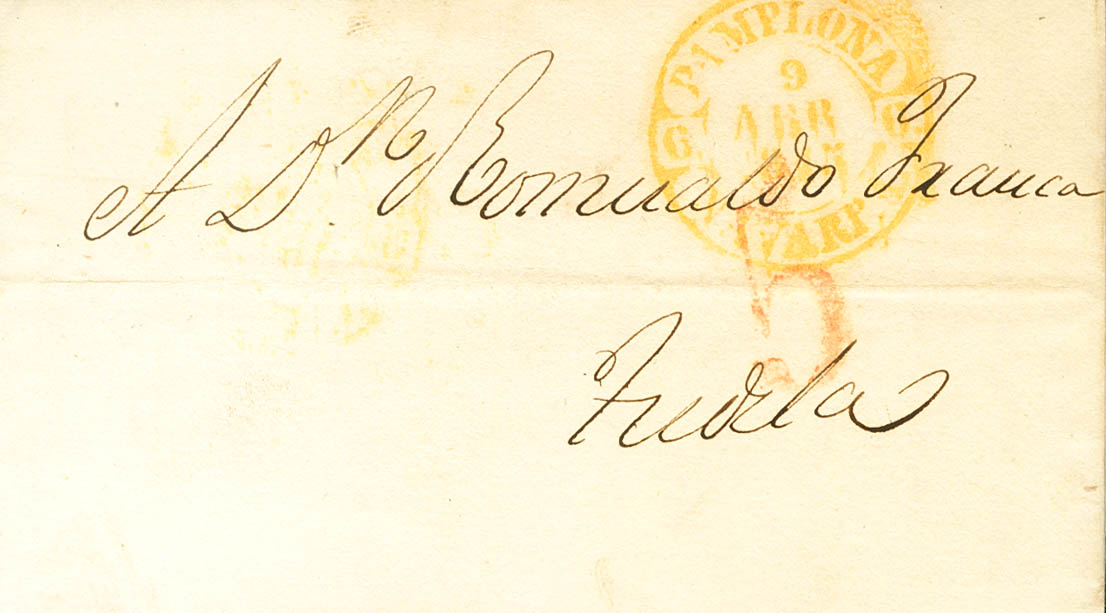 PAMPLONA
9
ABR
NAVARRA.
A D.n Romualdo Franca
5
Tudela